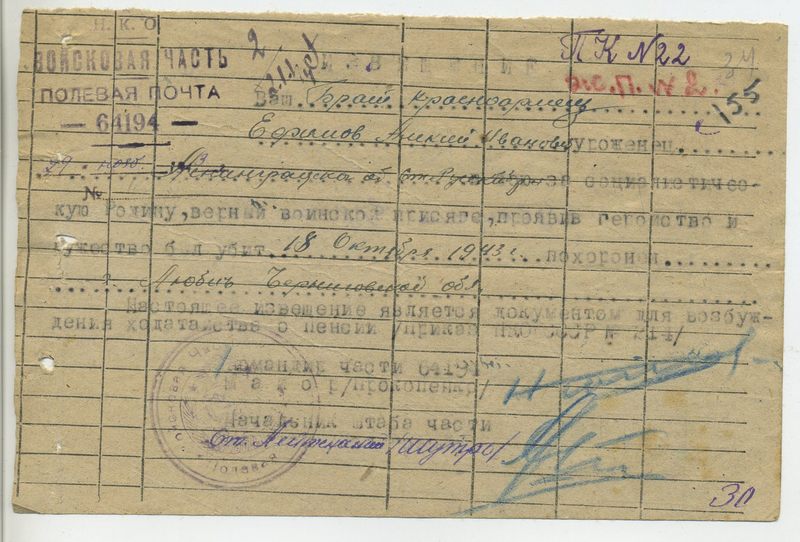 Н. К. О
ВОЙСКОВАЯ ЧАСТЬ 2
ПОЛЕВАЯ ПОЧТА
— 64194 —
ИЗВЕЩЕНИЕ
ПК N22
34
155
Ваш Брат красноармеец
Ефимов Иванович уроженец
29 нояб
№
Ленинградской об за социалистичес-
кую Родину, верный воинской присяге, проявив геройство и
мужество был убит 18 Октября 1943 г. похоронен
г Любеч Черниговской обл.
Настоящее извещение является документом для возбуж-
дения ходатайства о пенсии /приказ НКО СССР № 214/
Командир части 64194
Майор /Прокопенко/
Начальник штаба части
Ст. Лейтенант
Полевая
30